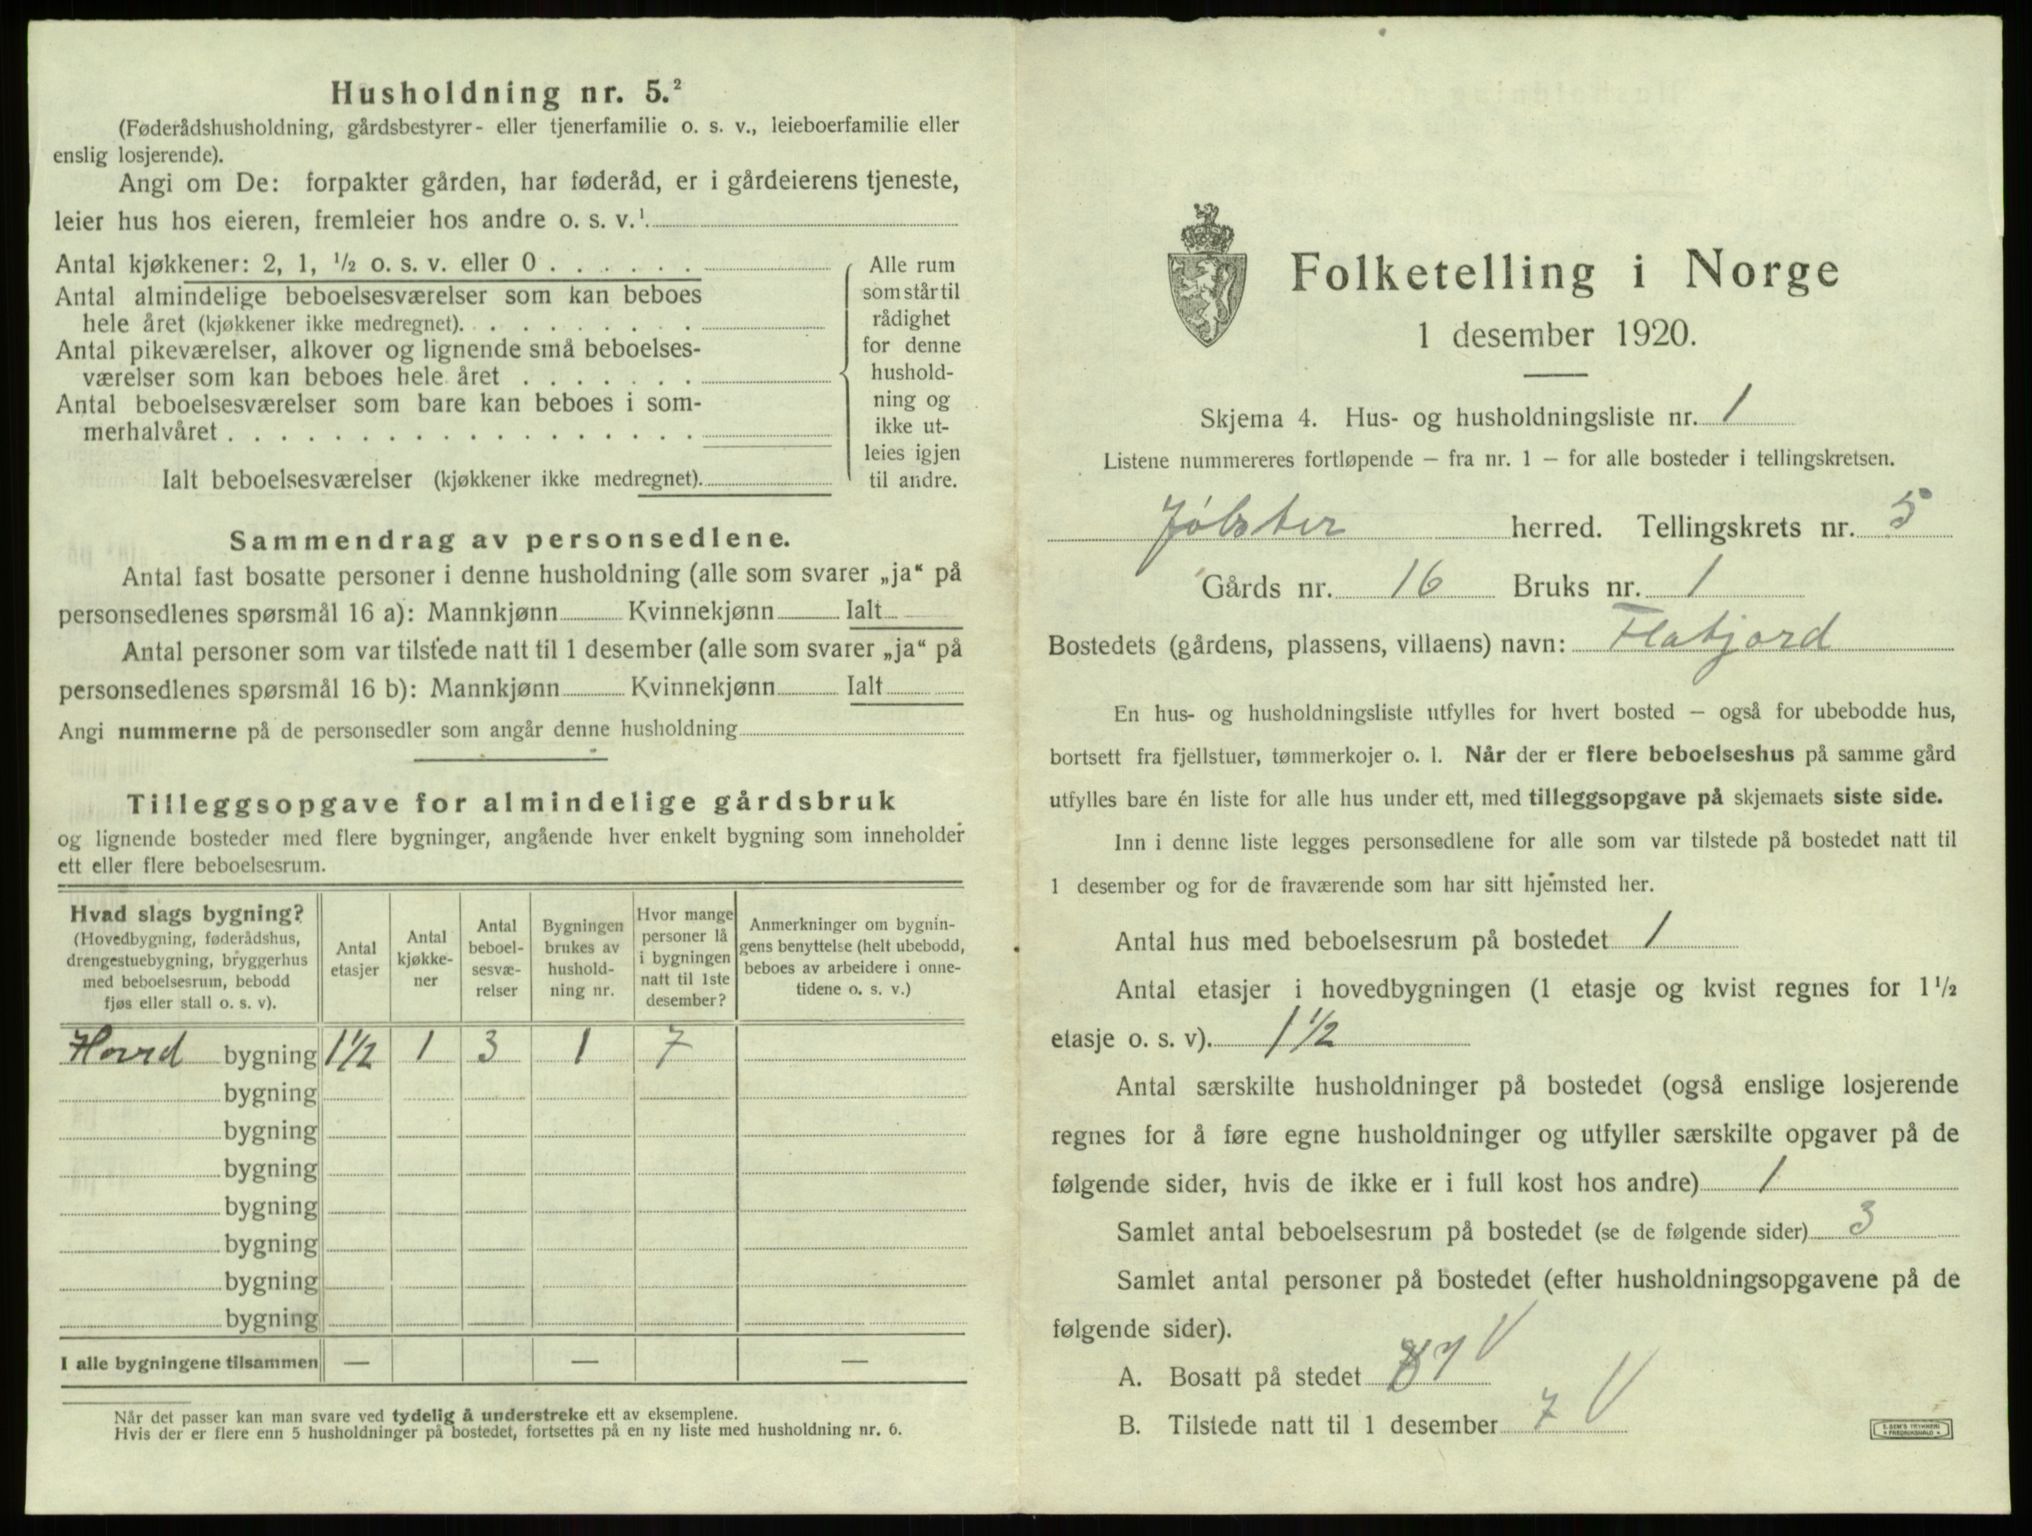 Husholdning nr. 5.²
(Føderådshusholdning, gårdsbestyrer- eller tjenerfamilie o. s. v., leieboerfamilie eller
enslig losjerende).
Angi om De: forpakter gården, har føderåd, er i gårdeierens tjeneste,
leier hus hos eieren, fremleier hos andre o. s. v.¹
Antal kjøkkener: 2, 1, ½ o. s. v. eller 0 . . . . . .
Antal almindelige beboelsesværelser som kan beboes
hele året (kjøkkener ikke medregnet). . . . . . . . .
Antal pikeværelser, alkover og lignende små beboelses-
værelser som kan beboes hele året . . . . . . .
Antal beboelsesværelser som bare kan beboes i som-
merhalvåret . . . . . . . . . . . . . . . . . .
Ialt beboelsesværelser (kjøkkener ikke medregnet).
Alle rum
som står til
rådighet
for denne
hushold-
ning og
ikke ut-
leies igjen
til andre.
Sammendrag av personsedlene.
Antal fast bosatte personer i denne husholdning (alle som svarer „ja“ på
personsedlenes spørsmål 16 a): Mannkjønn Kvinnekjønn Ialt
Antal personer som var tilstede natt til 1 desember (alle som svarer „ja“ på
personsedlenes spørsmål 16 b): Mannkjønn Kvinnekjønn Ialt
Angi nummerne på de personsedler som angår denne husholdning
Tilleggsopgave for almindelige gårdsbruk
og lignende bosteder med flere bygninger, angående hver enkelt bygning som inneholder
ett eller flere beboelsesrum.
Hvad slags bygning?
(Hovedbygning, føderådshus,
drengestuebygning, bryggerhus
med beboelsesrum, bebodd
fjøs eller stall o. s. v).
Antal
etasjer
Antal
kjøkke-
ner
Antal
beboel-
sesvæ-
relser
Bygningen
brukes av
hushold-
ning nr.
Hvor mange
personer lå
i bygningen
natt til 1ste
desember?
Anmerkninger om bygnin-
gens benyttelse (helt ubebodd,
beboes av arbeidere i onne-
tidene o. s. v.)
Hovd bygning 1½ 1 3 1 7
bygning
bygning
bygning
bygning
bygning
bygning
bygning
I alle bygningene tilsammen — — —
Når det passer kan man svare ved tydelig å understreke ett av eksemplene.
Hvis der er flere enn 5 husholdninger på bostedet, fortsettes på en ny liste med husholdning nr. 6.
Folketelling i Norge
1 desember 1920.
Skjema 4. Hus- og husholdningsliste nr. 1
Listene nummereres fortløpende – fra nr. 1 – for alle bosteder i tellingskretsen.
Jølster herred. Tellingskrets nr. 5
Gårds nr. 16 Bruks nr. 1
Bostedets (gårdens, plassens, villaens) navn: Flatjord
En hus- og husholdningsliste utfylles for hvert bosted – også for ubebodde hus,
bortsett fra fjellstuer, tømmerkojer o. l. Når der er flere beboelseshus på samme gård
utfylles bare én liste for alle hus under ett, med tilleggsopgave på skjemaets siste side.
Inn i denne liste legges personsedlene for alle som var tilstede på bostedet natt til
1 desember og for de fraværende som har sitt hjemsted her.
Antal hus med beboelsesrum på bostedet 1
Antal etasjer i hovedbygningen (1 etasje og kvist regnes for 1½
etasje o. s. v). 1½
Antal særskilte husholdninger på bostedet (også enslige losjerende
regnes for å føre egne husholdninger og utfyller særskilte opgaver på de
følgende sider, hvis de ikke er i full kost hos andre) 1
Samlet antal beboelsesrum på bostedet (se de følgende sider) 3
Samlet antal personer på bostedet (efter husholdningsopgavene på de
følgende sider).
A. Bosatt på stedet 7 V
B. Tilstede natt til 1 desember 7 V
E. SEM'S TRYKKERI
FREDRIKSHALD